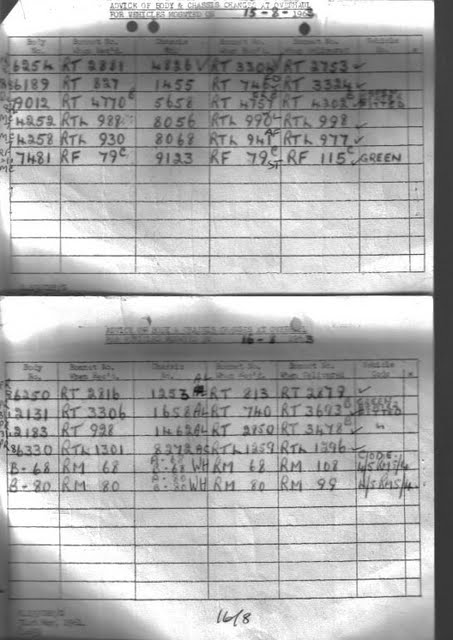 ADVICE OF BODY & CHASSIS CHANGES AT OVERHAUL
FOR VEHICLES MOUNTED ON 15-8-1963
Body No. Bonnet No. When Rec'd. Chassis No. Bonnet No. When Rec'd. Bonnet No. When Delivered Vehicle Code
6254 RT 2851 4826 ✓ RT 3304 RT 2753 ✓
6189 RT 827 1455 RT RT 3324 ✓
9012 RT 4770 5658 RT 4757 RT 4202
4252 RTL 988 8056 RTL 990 RTL 998 ✓
4258 RTL 930 8068 RTL 941 RTL 977 ✓
7481 RF 79 C 9123 RF 79 C ST RF 115 C ✓ GREEN
ADVICE OF BODY & CHASSIS CHANGES AT OVERHAUL
FOR VEHICLES MOUNTED ON 16-8 1963
Body No. Bonnet No. When Rec'd. Chassis No. Bonnet No. When Rec'd. Bonnet No. When Delivered Vehicle Code
6250 RT 2816 1253 AL RT 813 RT 2679 ✓
2131 RT 3306 1658 AL RT 740 RT 3693 GREEN
2183 RT 928 1462 AL RT 2850 RT 3478
6330 RTL 1301 8272 RTL 1259 RTL 1296 ✓
B-68 RM 68 B-68 WH RM 68 RM 108 CODE 4/5RM5/4
B-80 RM 80 B-80 WH RM 80 RM 99 4/5RM5/4
16/8